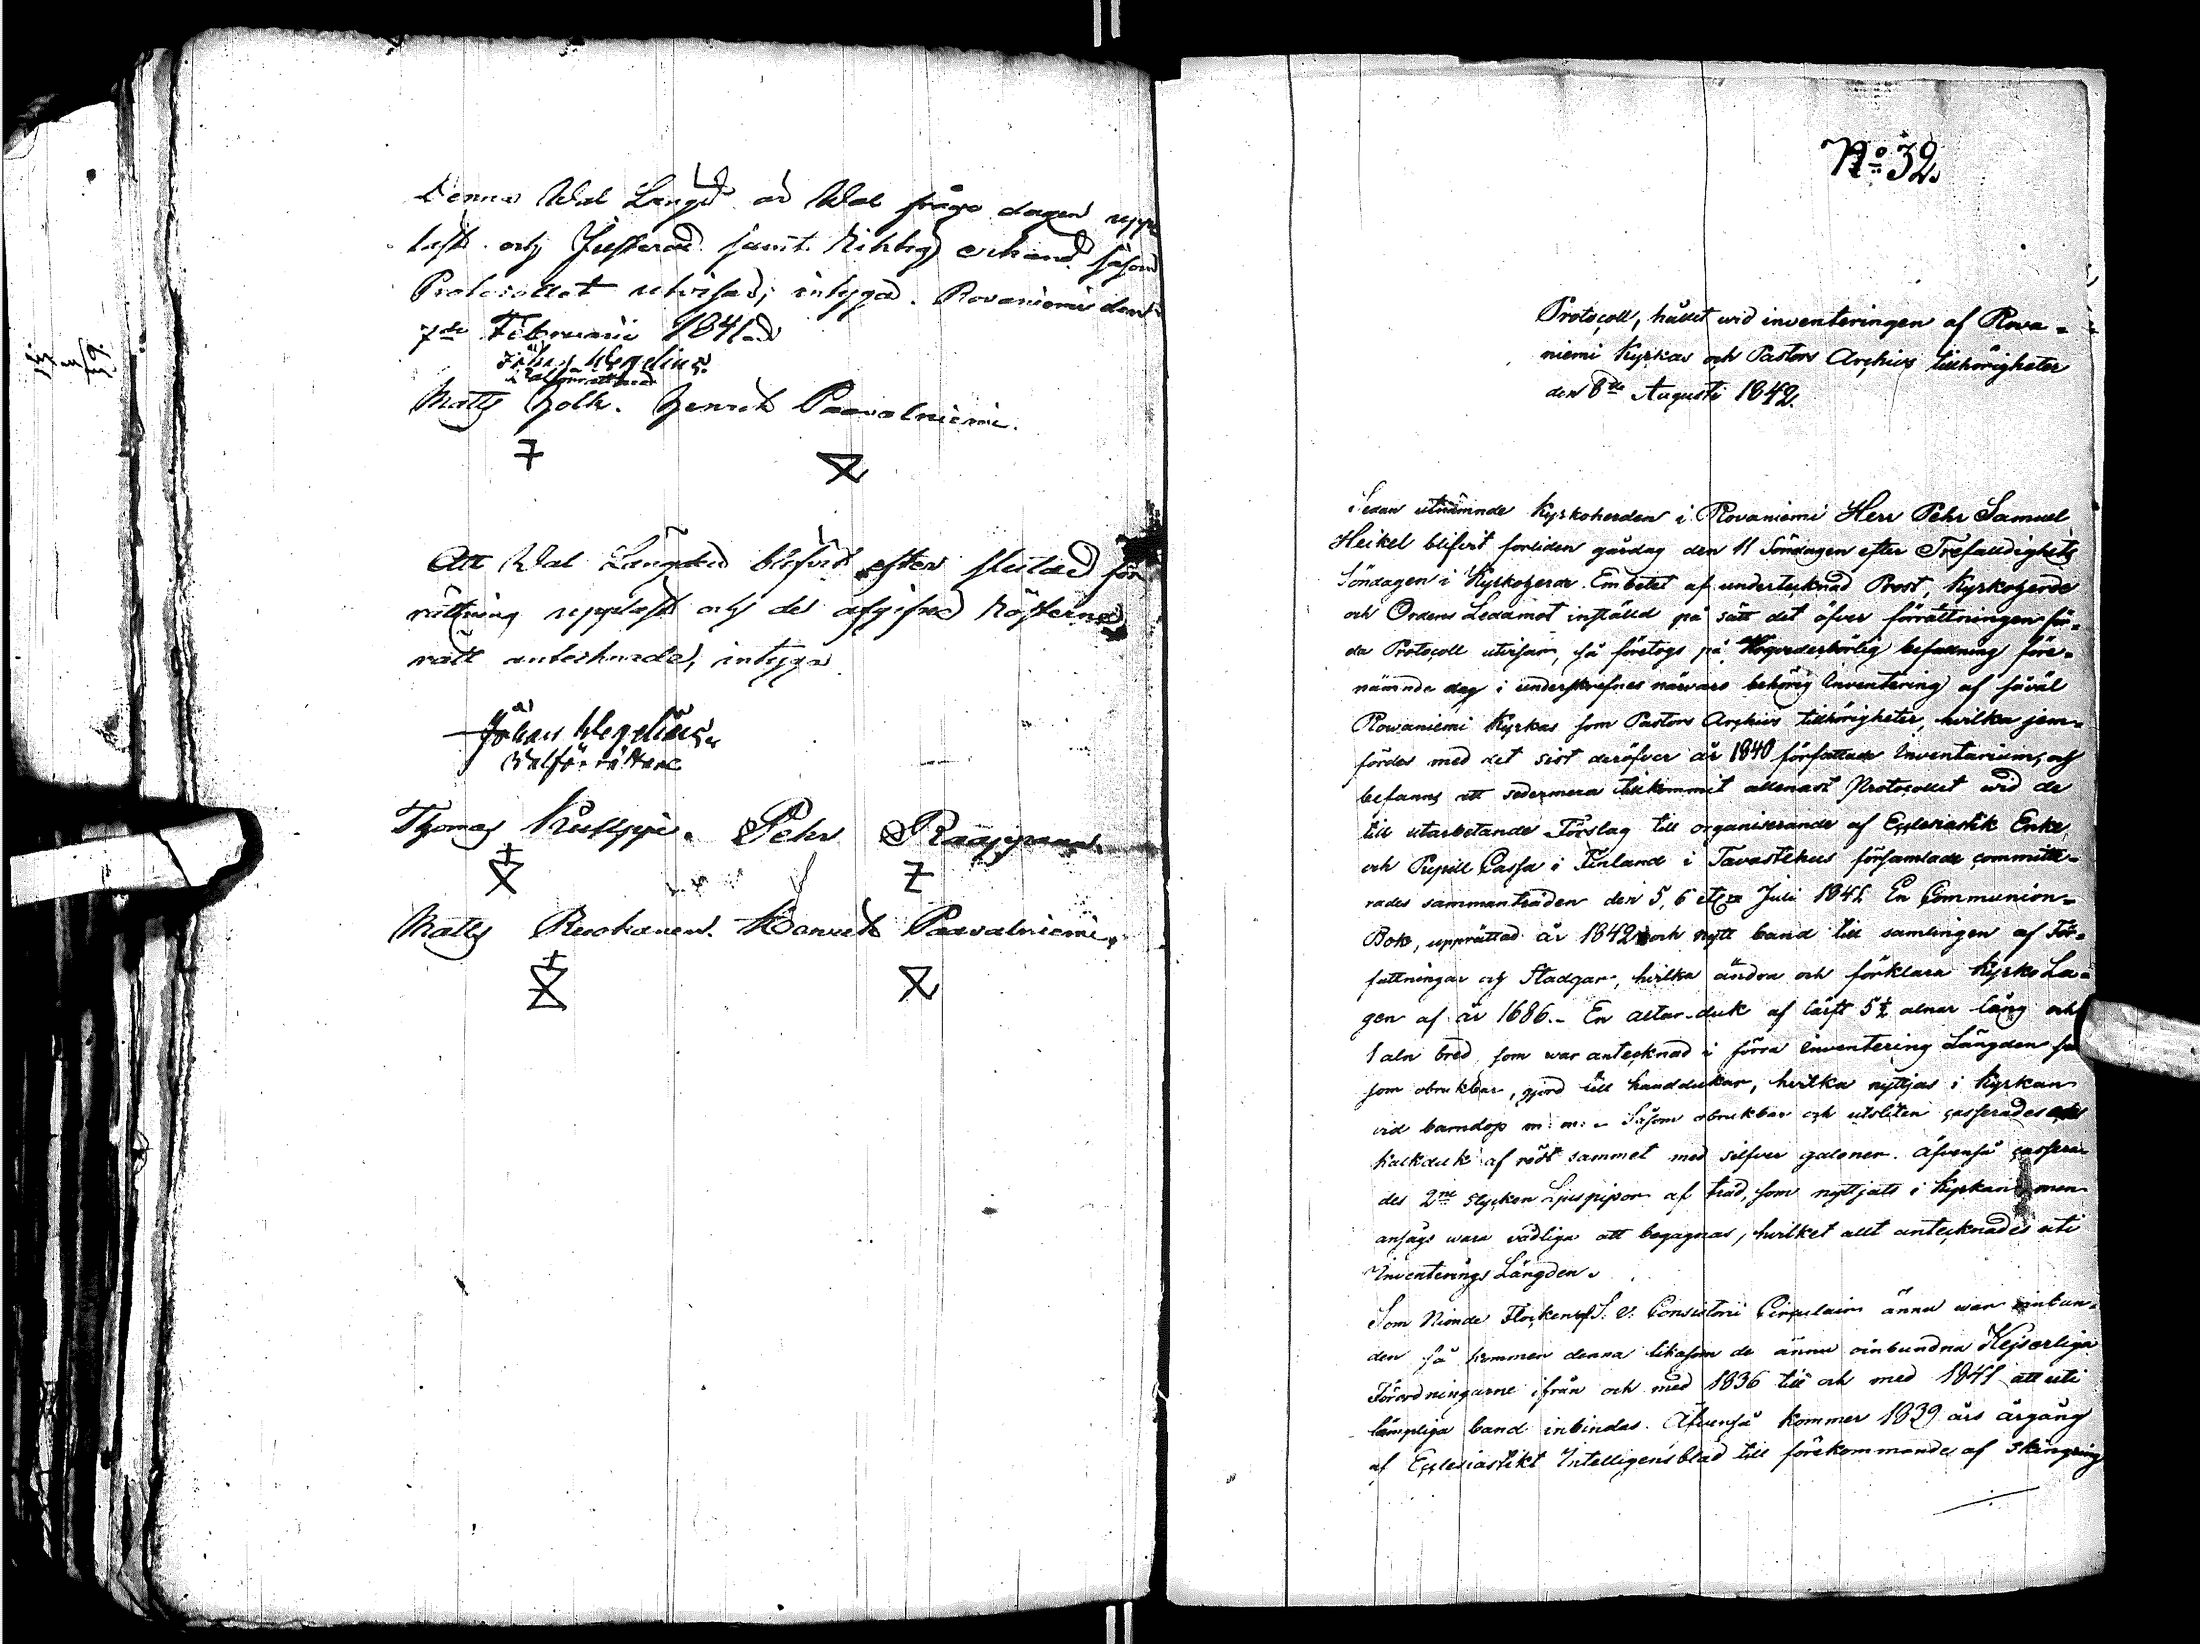 Denna Wal Längd är Wal fråge dagen upp
läst och Justerad samt Riktig erkänd såsom
Protocollet utvisar; intygar. Rovaniemi den
7de Februarii 1841.
Johan Wegelius.
Valförrättare
Matts Folk. Henrik Paavalniemi.
Att Wal Längden blifvit efter slutad för
rättning uppläst och de afgifne Rösterne
rätt antecknade, intyga
Johan Wegelius.
Valförrättare
Thomas Kulppi. Pehr Raappana.
Matts Ruokanen. Henrik Paavalniemi.
No 32.
Protocoll, hållet wid inventeringen af Rova=
niemi Kyrkas och Pastors Archivs tillhörigheter
den 8de Augusti 1842.
Sedan utnämnde Kyrkoherden i Rovaniemi Herr Pehr Samuel
Heikel blifvit förliden gårdag den 11 Söndagen efter Trefaldighets
Söndagen i Kyrkoherde Embetet af undertecknad Prost, Kyrkoherde
och Ordens Ledamot inställd på sätt det öfver förrättningen för=
da Protocoll utvisar, så företogs på Högvederbörlig befallning före=
nämnde dag i underskrefnes närvaro behörig Inventering af såväl
Rovaniemi Kyrkas som Pastors Archivs tillhörigheter, hvilka jem=
fördes med det sist deröfver år 1840 författade Inventarium, och
befanns att sedermera tillkommit allenast Protocollet wid de
till utarbetande Förslag till organiserande af Ecclesiastik Enke
och Pupill Cassa i Finland i Tavastehus församlade committe=
rades sammanträden den 5, 6 et 7 Juli 1841 En Communion=
Bok, upprättad år 1842 och nytt band till samlingen af För=
fattningar och Stadgar, hvilka ändra och förklara Kyrko La=
gen af år 1686.- En altar-duk af lärft 5½ alnar lång och
1 aln bred, som war antecknad i förra Inventering Längden så
som obrukbar, gjord till handdukar, hvilka nyttjas i Kyrkan
vid barndop m: m: - Såsom obrukbar och utsliten casserades
Kalkduk af rödt sammet med silfver galoner. Äfvenså cassera=
des 2ne stycken Ljuspipor af träd, som nyttjats i Kyrkan men
ansågs wara vådliga att begagnas, hvilket allt antecknades uti
Inventerings Längden.
Som Nionde Flocken af S. V. Consistorii Circulair ännu war oinbun=
den så kommer denna likasom de ännu oinbundna Kejserliga
Förordningarne ifrån och med 1836 till och med 1841 att uti
lämpliga band inbindas. Äfvenså kommer 1839 års årgång
af Ecclesiastikt Intelligensblad till förekommande af skingring